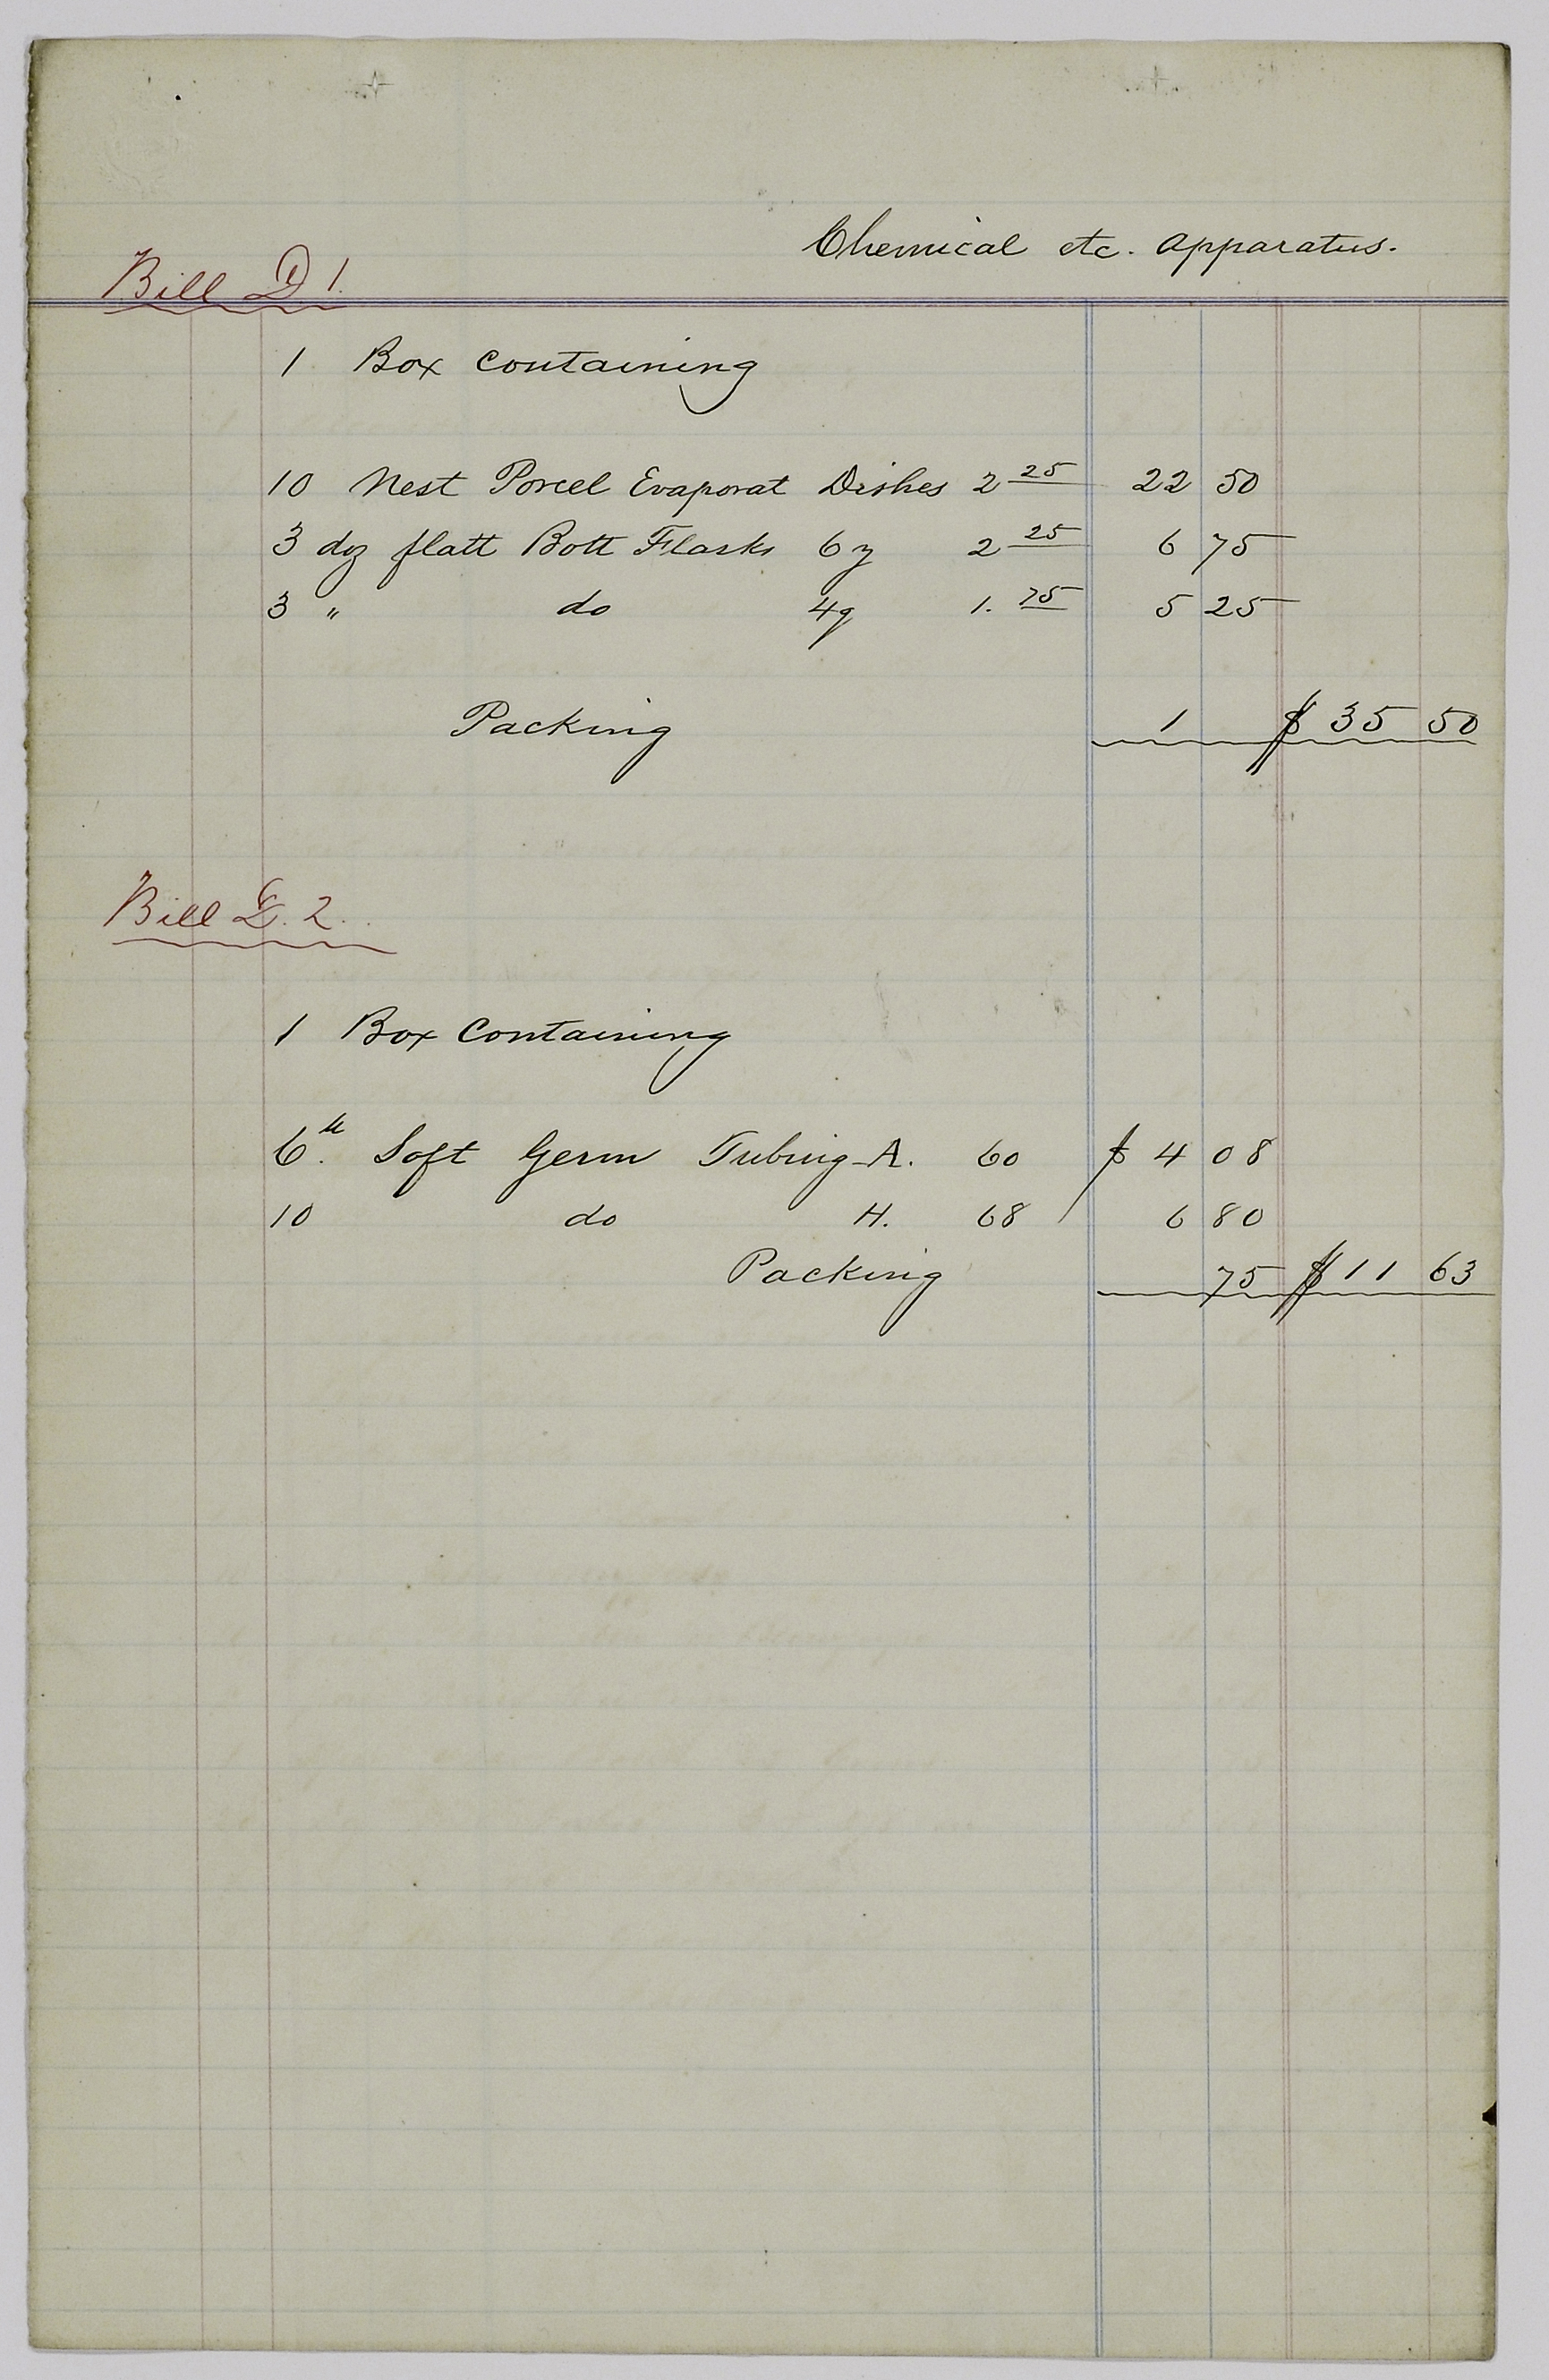 Chemical etc. apparatus.
Bill D 1.
1 Box containing
10 Nest Porcel Evaporat Dishes 2 25 22 50
3 doz flatt Bott Flasks 6 z 2 25 6 75
3 " do 4 z 1. 75 5 25
Packing 1 $ 35 50
Bill D. 2.
1 Box Containing
6 lb. Soft Germ Tubing A. 60 $ 4 08
10 do H. 68 / 6 80
Packing 75 $ 11 63